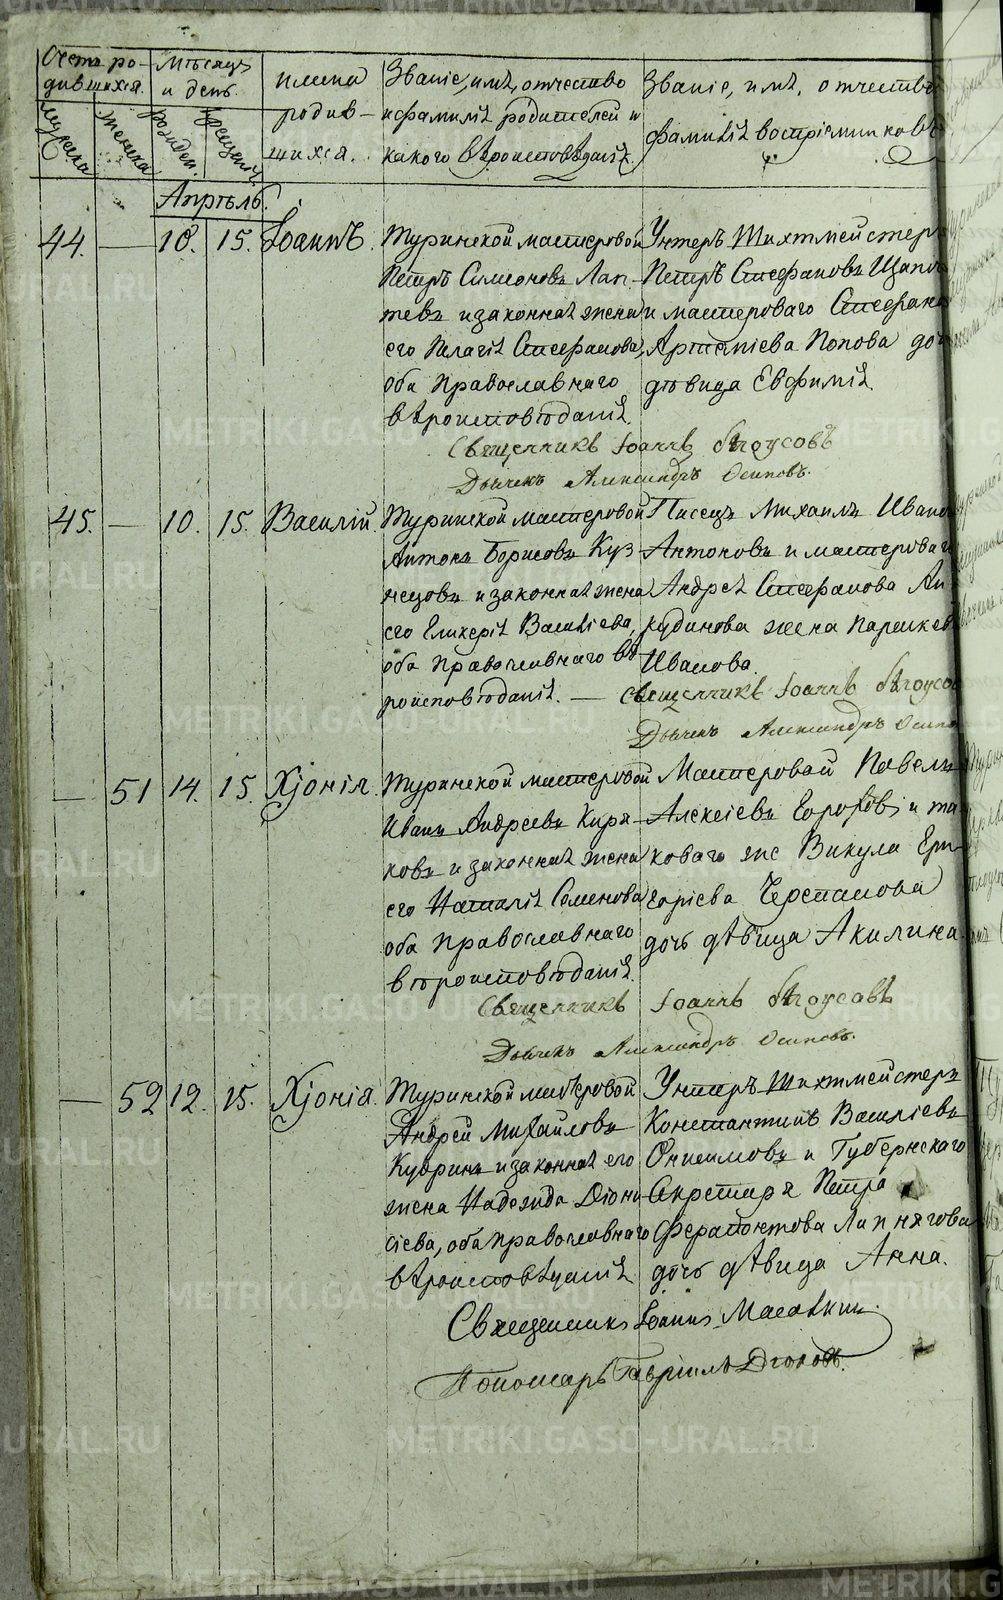 Счетъ ро-
дившихся.
Мѣсяцъ
и день.
имена
родив-
шихся.
Званіе, имя, отчество
и фамилія родителей и
какого вѣроисповѣданія.
Званіе, имя, отчество
фамилія воспріемниковъ
мужска
женска
рожден.
крещенія
Апрѣль.
44. — 10. 15. Іоаннъ.
Туринской мастеровой
Петръ Симеоновъ Лап-
тевъ и законная жена
его Пелагія Стефанова,
оба Православнаго
вѣроисповѣданія
Унтеръ Шихтмейстеръ
Петръ Стефановъ
и мастероваго Стефана
Артеміева Попова дочь
дѣвица Евфимія
Священникъ Іоаннъ Бѣлоусовъ
Дьячекъ Александръ Осиповъ.
45. — 10. 15. Василій.
Туринской мастеровой
Антонъ Борисовъ Куз
нецовъ и законная жена
его Гликерія Васильева,
оба Православнаго вѣ
роисповѣданія. —
Писецъ Михаилъ Ивано
Антоновъ и мастероваго
Андрея Стефанова Ан
кудинова жена Параскева
Иванова.
Священникъ Іоаннъ Бѣлоусов
Дьячекъ Александръ Осипо
— 51 14. 15. Хіонія.
Туринской мастеровой
Иванъ Андреевъ Киря
ковъ и законная жена
его Наталія Семенова
оба православнаго
вѣроисповѣданія.
Мастеровой Павелъ
Алексіевъ Гороховъ и та
коваго же Викула Гри-
горіева Черепанова
дочь дѣвица Акилина.
Священникъ Іоаннъ Бѣлоусовъ
Дьячекъ Александръ Осиповъ.
— 52 12. 15. Хіонія.
Туринской мастеровой
Андрей Михайловъ
Кувринъ и законная его
жена Надежда Діони
сіева, оба православнаго
вѣроисповѣданія
Унтеръ Шихтмейстеръ
Константинъ Васильевъ
Онисимовъ и Губернскаго
Секретаря Петра
Ферапонтова Лапнягова
дочь дѣвица Анна.
Священникъ Іоаннъ
Пономарь Гавріилъ
METRIKI.GASO-URAL.RU